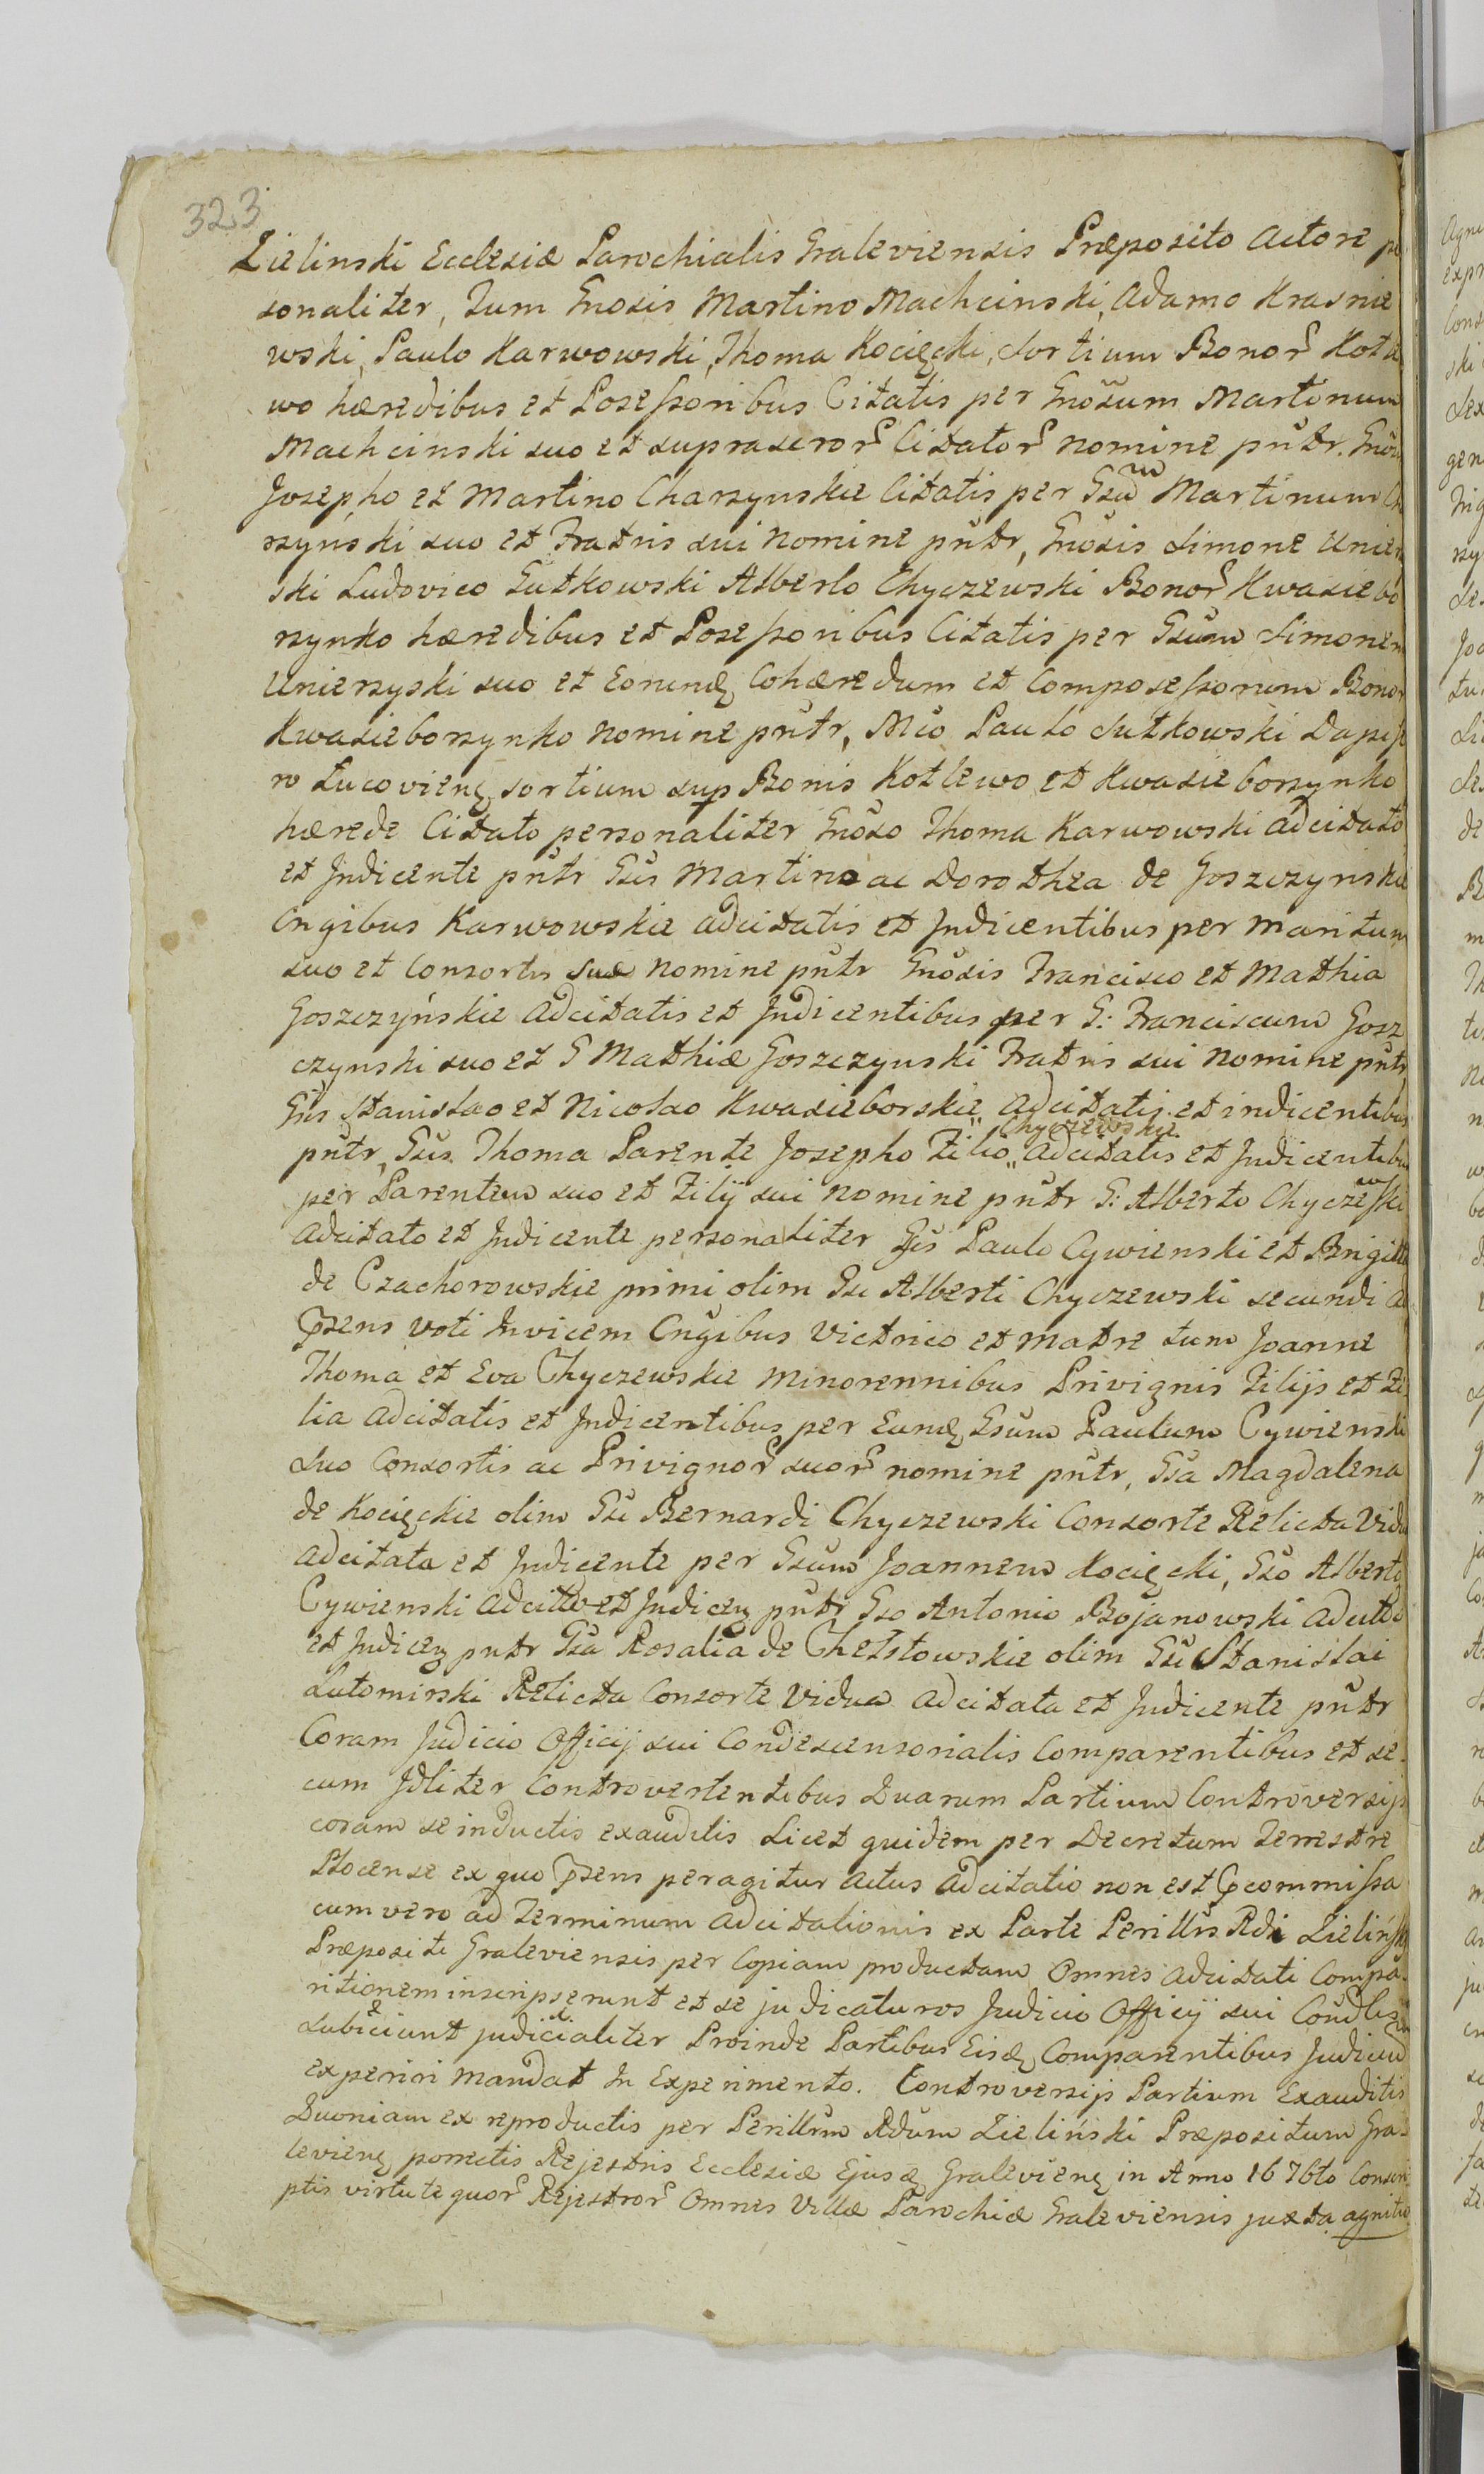 323
Zielinski Ecclesiæ Parochialis Graleviensis Præposito Actore per
sonaliter, Tum Gnosis Martino Machcinski, Adamo Krasnie
wski, Paulo Karwowski, Thoma Kocięcki, Sortium Bonor Kotle
wo hæredibus et Posessoribus Citatis per Gnosum Martinum
Machcinski suo et suprascror Citator nomine pntbr. Gnosis
Josepho et Martino Charzynskie Citatis per Gsum Martinum Cha
rzyński suo et Fratris sui nomine pntbr, Gnosis Simone Unierzy
ski Ludovico Gutkowski Alberto Chyczewski Bonor Kwasiebo
rzynko hæredibus et Posessoribus Citatis per Gsum Simonem
Unierzyski suo et Eorundę Cohæredum et Compossessorum Bonor
Kwasieborzynko nomine pntr, Mco Paulo Sutkowski Dapife
ro Lucovienę, sortium sup Bonis Kotlewo et Kwasieborzynko
hærede Citato personaliter Gnoso Thoma Karwowski adcitato
et Indicente pntr Gsis Martino ac Dorothea de Goszczynskie
Cngibus Karwowskie adcitatis et Indicentibus per maritum
suo et Consortis suæ nomine pntr Gnosis Francisco et Mathia
Goszczyńskie adcitatis et Indicentibus per G: Franciscum Gosz
czynski suo et G Mathiæ Goszczynski Fratris sui nomine pntr
Gsis Stanislao et Nicolao Kwasieborskie adcitatis et indicentibus
Chyczewskie
pntr, Gsis Thoma Parente Josepho Filio,, adcitatis et Indicentibus
per Parentem suo et Filij sui nomine pntbr G: Alberto Chyczewski
adcitato et Indicente personaliter Gsis Paulo Cywienski et Brigitta
de Czachorowskie primi olim Gsi Alberti Chyczewski secundi ad
psens voti Invicem Cngibus Victrico et matre tum Joanne
Thoma et Eva Chyczewskie Minorennibus Privignis Filijs et Fi
lia adcitatis et Indicentibus per Eundę Gsum Paulum Cywienski
Suo Consortis ac Privignor suor nomine pntr, Gsa Magdalena
de Kocięckie olim Gsi Bernardi Chyczewski Consorte Relicta Vidua
adcitata et Indicente per Gsum Joannem Kocięcki, Gso Alberto
Cywienski adcitto et Indiceną pntbr Gso Antonio Bojanowski adcitto
et Indiceną pntbr Gsa Rosalia de Chelstowskie olim Gsi Stanislai
Lutomirski Relicta Consorte Vidua adcitata et Indicente pntbr
Coram Judicio Officij sui Condescensorialis Comparentibus et se-
cum Jdliter Controvertentibus Quarum Partium Controversijs
coram se inductis exauditis Licet quidem per Decretum Terrestre
Plocense ex quo psens peragitur actus adcitatio non est pcommissa
cum vero ad Terminum adcitationis ex Parte Perillris Rdi Zieliński
Præpositi Graleviensis per Copiam productam Omnes adcitati Compa-
ritionem inscripserunt et se judicaturos Judicio Officij sui Condlis
subiiciunt judicialiter Proinde Partibus Eisdę Comparentibus Judicium
experiri mandat In Experimento. Controversijs Partium Exauditis
Quoniam ex reproductis per Perillrem Rdum Zieliński Præpositum Gra-
levienę porrectis Rejestris Ecclesiæ Ejusdę Gralevienę in Anno 1676to Conscri-
ptis virtute quor Rejestror Omnes Villæ Parochiæ Graleviensis juxta agnitio